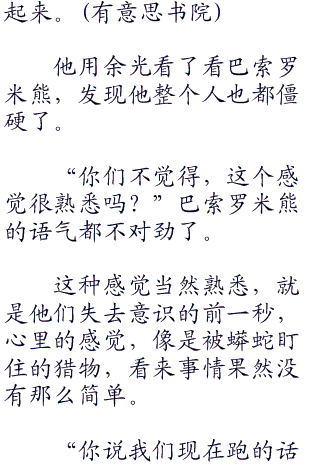 起来。(有意思书院)
他用余光看了看巴索罗
米熊，发现他整个人也都僵
硬了。
“你们不觉得，这个感
觉很熟悉吗？”巴索罗米熊
的语气都不对劲了。
这种感觉当然熟悉，就
是他们失去意识的前一秒，
心里的感觉，像是被蟒蛇盯
住的猎物，看来事情果然没
有那么简单。
“你说我们现在跑的话